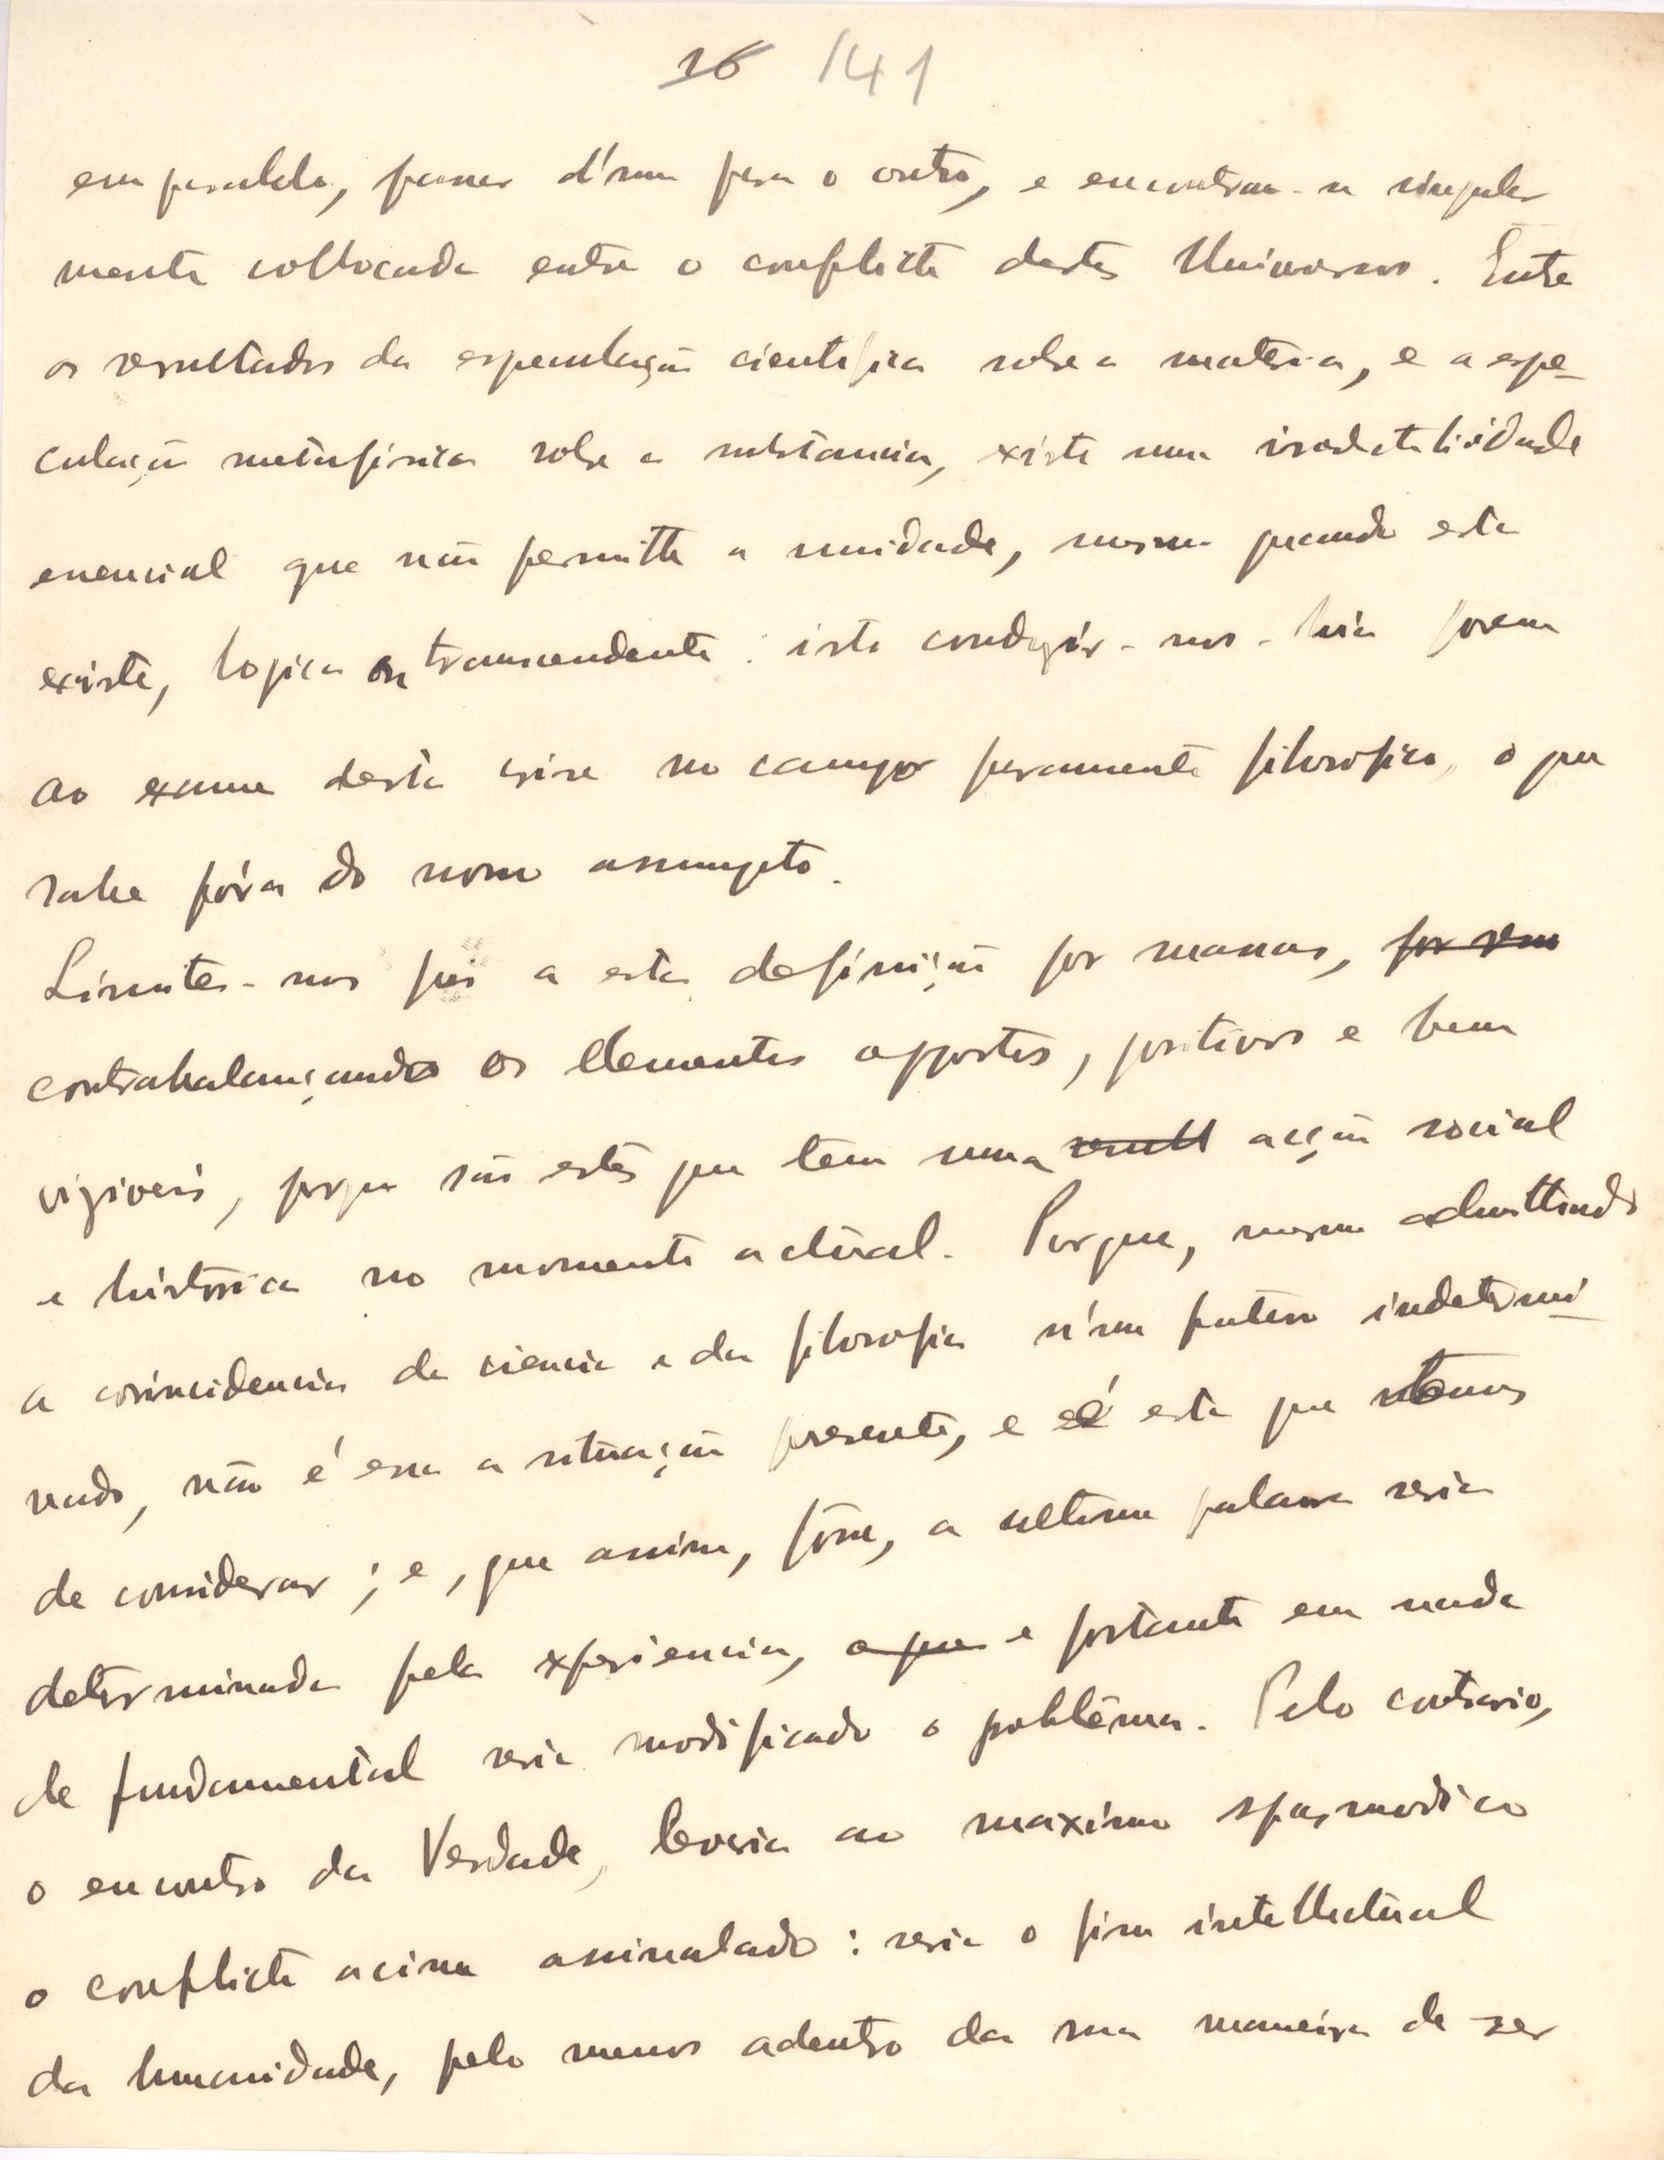 16 141
em paralelo, passar d'um para o outro, e encontram-se singular
mente collocada entre o conflicto destes Universos. Entre
os resultados da especulação cientifica sobre a materia, e a espe-
culação metafisica sobre a substancia, existe uma irredutibilidade
essencial que não permitte a unidade, mesmo quando esta
existe, logica ou transcendente: isto conduzir-nos-hia porem
ao exame desta crise no campo puramente filosofico, o que
sahe fóra do nosso assumpto.
Limitêmo-nos pois a esta definição por massas, por sem
contrabalançando os elementos oppostos, positivos e bem
vizíveis, porque são estes que tem uma result acção social
e historica no momento actual. Porque, mesmo admittindo
a coincidencia da ciencia e da filosofia n'um futuro indetermi-
nado, não é essa a situação presente, e é esta que temos
de considerar; e, que assim, fôsse, a ultima palavra seria
determinada pela experiencia, o que e portanto em nada
de fundamental seria modificado o problêma. Pelo contrario,
o encontro da Verdade, levaria ao maximo spasmodico
o conflicto acima assinalado: seria o fim intellectual
da humanidade, pelo menos adentro da sua maneira de ser